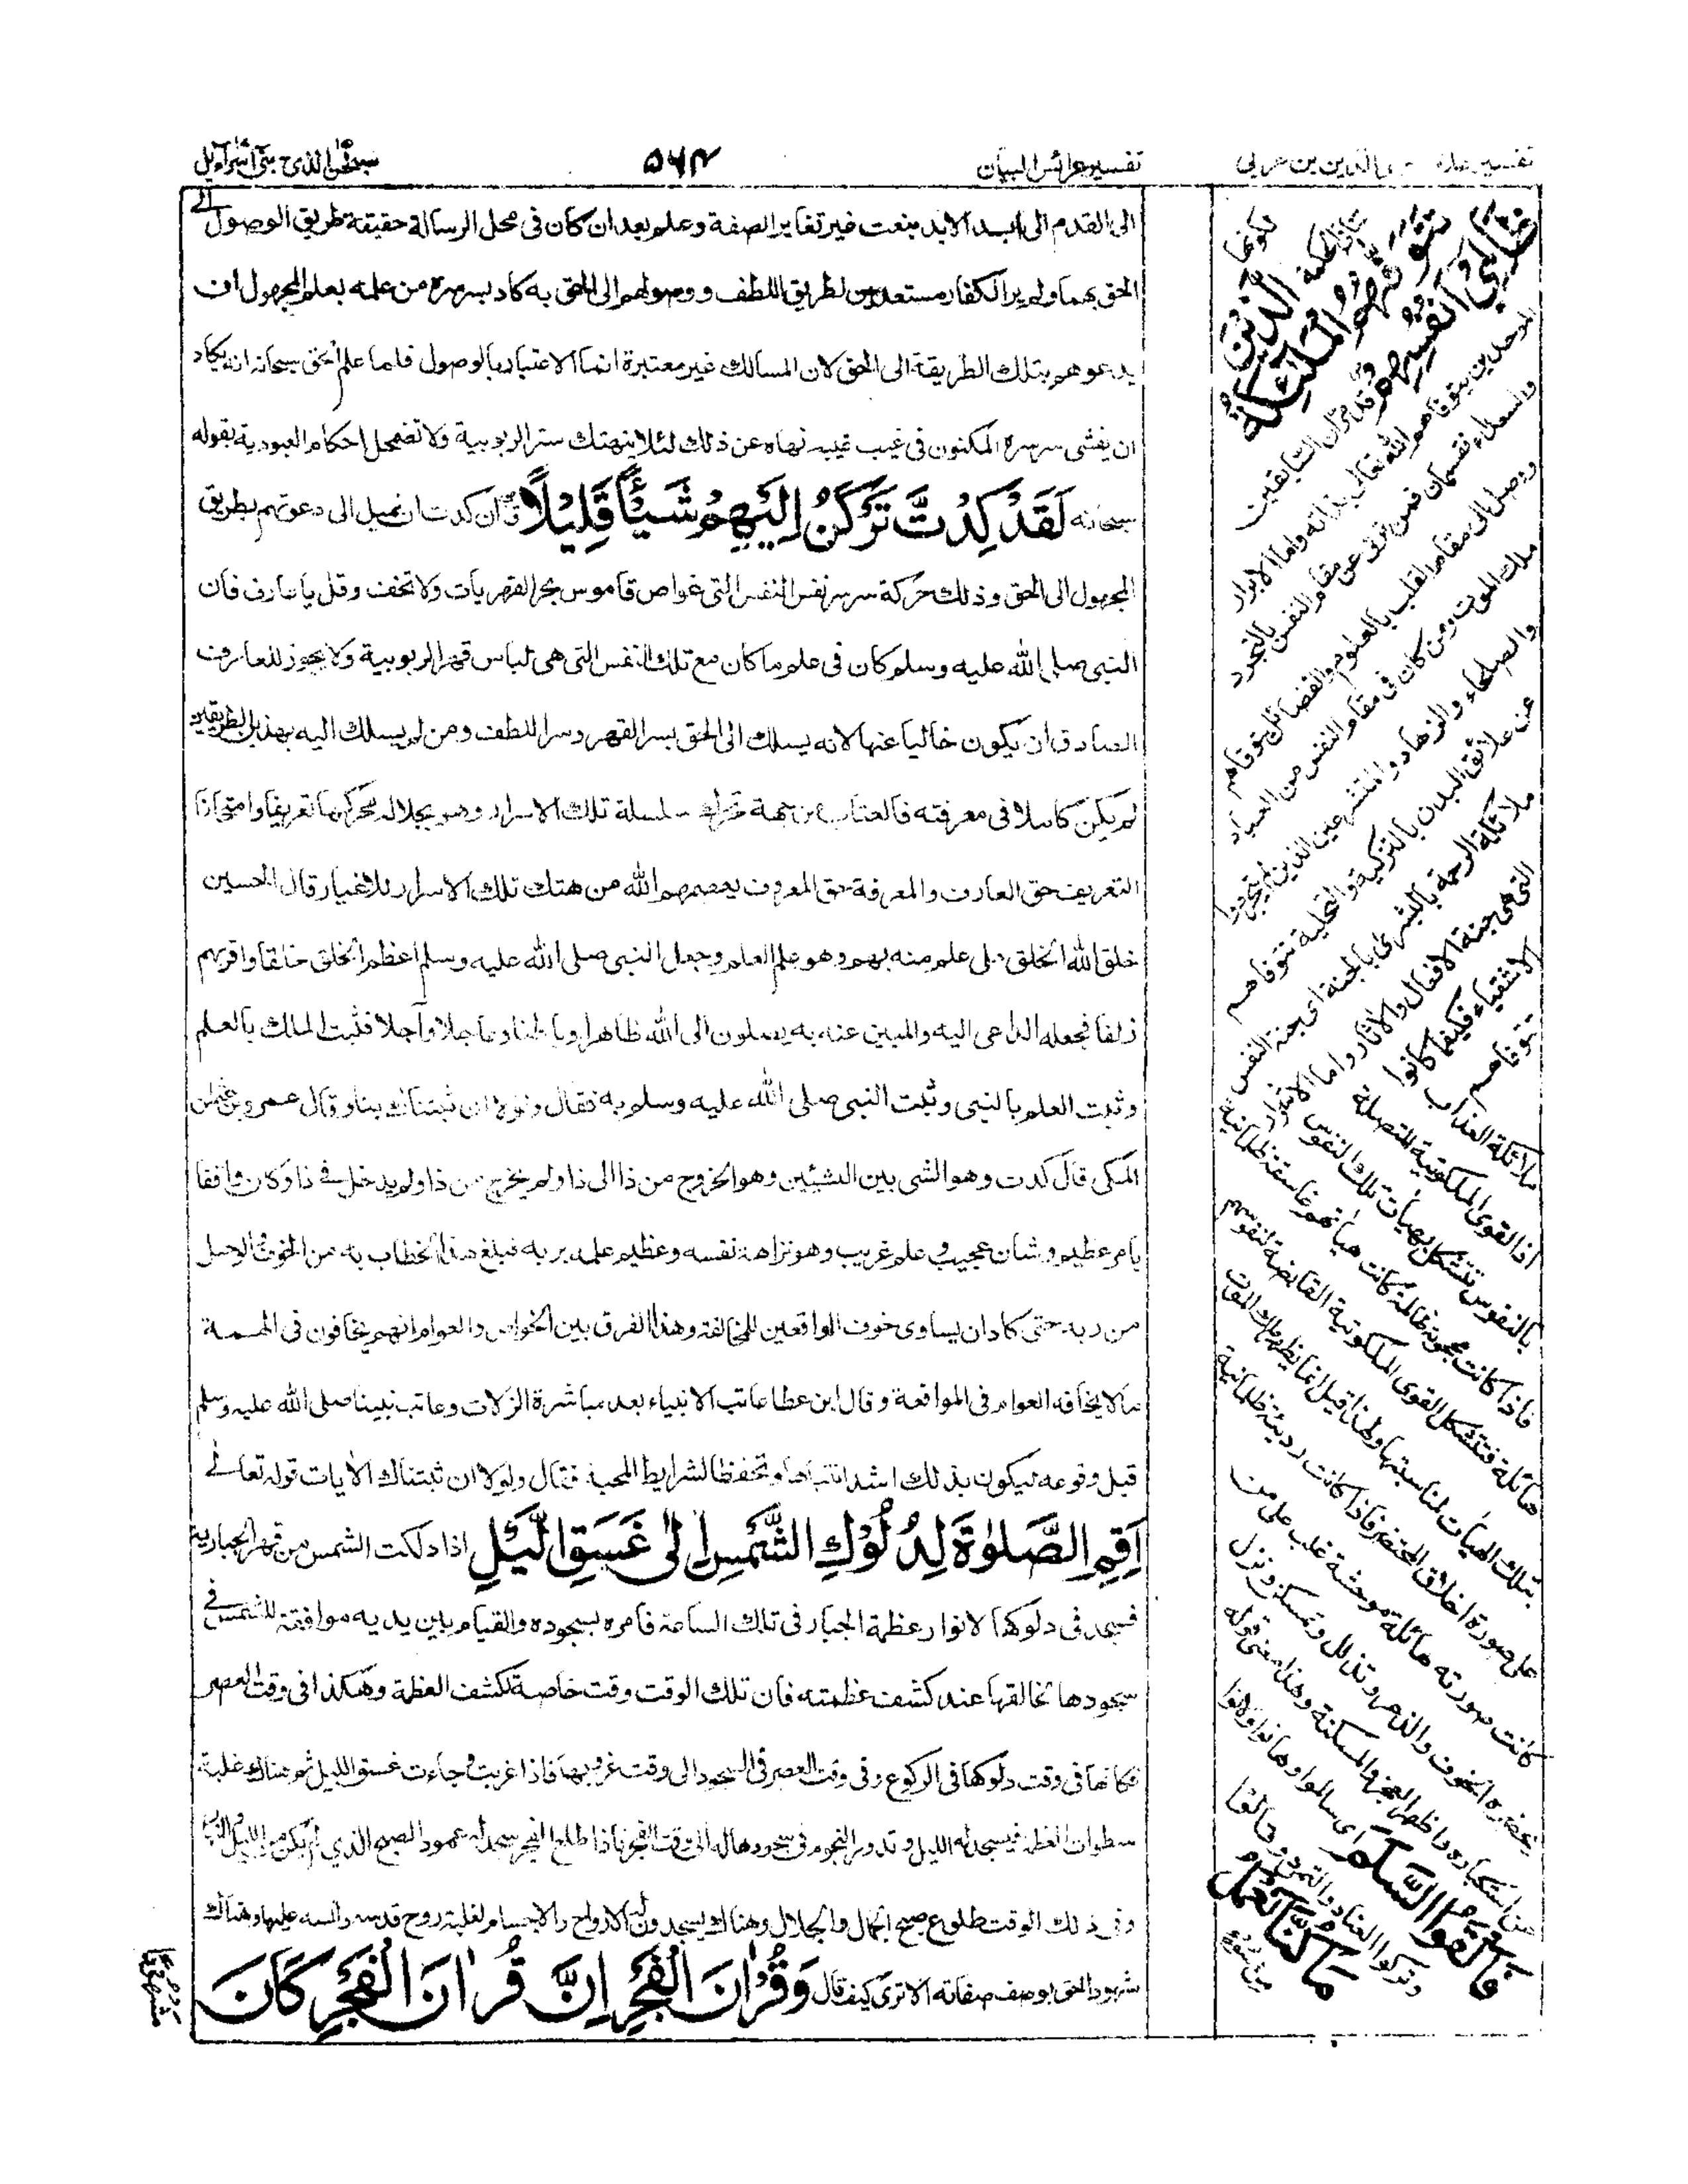 تفسير عرائس البيان
۵۶۴
سبحن الذى بنى اسرآءيل
الى القدم الى ابد الابد بنعت غير تغاير الصفة وعلم بعد ان كان فى محل الرسالة حقيقة طريق الوصول الى
الحق بهما ولم ير الكفار مستعدين لطريق اللطف ووصولهم الى الحق به كاد بسر سره من علمه بعلم المجهول ان
يدعوهم بتلك الطريقة الى الحق لان المسالك غير معتبرة انما الاعتبار بالوصول فلما علم الحق سبحانه انه يكاد
ان يفشى سر سره المكنون فى غيب غيبه نهاه عن ذلك لئلا ينهتك ستر الربوبية ولا تضمحل احكام العبودية بقوله
سبحانه لَقَدْ كِدْتَّ تَرْكَنُ اِلَيْهِمْ شَيْـًٔا قَلِيْلًا ان كدت ان تميل الى دعوتهم بطريق
المجهول الى الحق وذلك حركة سر سر نفس النفس التى غواص قاموس بحر القهريات ولا تخف وقل يا عارف فان
النبى صلى الله عليه وسلم كان فى علم ما كان مع تلك النفس التى هى لباس قهر الربوبية ولا يجوز للعارف
الصادق ان يكون خاليا عنها لانه يسلك الى الحق بسر القهر وسر اللطف ومن لم يسلك اليه بهذين الطريقين
لم يكن كاملا فى معرفته فالعتاب من جهة تحرك سلسلة تلك الاسرار وهو بجلاله يحركها تعريفا وامتحانا
التعريف حق العارف والمعرفة حق المعروف يعصمهم الله من هتك تلك الاسرار للاغيار قال الحسين
خلق الله الخلق على علم منه بهم وهو علم العلم وجعل النبى صلى الله عليه وسلم اعظم الخلق خلقا واقربهم
زلفا فجعله الداعى اليه والمبين عنه به يصلون الى الله ظاهرا وباطنا وعاجلا وآجلا فثبت الملك بالعلم
وثبت العلم بالنبى وثبت النبى صلى الله عليه وسلم به فقال ولولا ان ثبتناك بنا وقال عمرو بن عثمان
المكى قال كدت وهو الشى بين الشيئين وهو الخروج من ذا الى ذا ولم يخرج من ذا ولم يدخل فى ذا وكان واقفا
بامر عظيم وشان عجيب وعلم غريب وهو نزاهة نفسه وعظيم علمه بربه فبلغ هذا الخطاب به من الخوف والوجل
من ربه حتى كاد ان يساوى خوف الواقعين للمخالفة وهذا الفرق بين الخواص والعوام انهم يخافون فى الهمة
ما لا يخافه العوام فى المواقعة وقال ابن عطا عاتب الانبياء بعد مباشرة الزلات وعاتب نبينا صلى الله عليه وسلم
قبل وقوعه ليكون بذلك اشد انتباها وتحفظا لشرايط المحبة فقال ولولا ان ثبتناك الايات قوله تعالى
اَقِمِ الصَّلٰوةَ لِدُلُوْكِ الشَّمْسِ اِلٰى غَسَقِ الَّيْلِ اذا دلكت الشمس من قهر الجبارية
فسجد فى دلوكها لانوار عظمة الجبار فى تلك الساعة فامره بسجوده والقيام بين يديه موافقة للشمس فى
سجودها لخالقها عند كشف عظمته فان تلك الوقت وقت خاصة لكشف العظمة وهكذا فى وقت العصر
فكانها فى وقت دلوكها فى الركوع وفى وقت العصر فى السجود الى وقت غروبها فاذا غربت وجاءت غسق الليل ثم هناك غلبة
سطوات العظمة فيسجد له الليل وتدور النجوم فى سجودها له الى وقت الفجر فاذا طلع الفجر سجد له عمود الصبح الذى
وفى ذلك الوقت طلوع صبح الجمال والجلال وهناك يسجدون له الارواح والاجسام لغلبة روح قدسه وانسه عليها وهناك
شهود الحق بوصف صفاته الا ترى كيف قال وَقُرْاٰنَ الْفَجْرِ اِنَّ قُرْاٰنَ الْفَجْرِ كَانَ
مَشْهُوْدًا
الدين بن عربى
الَّذِيْنَ تَتَوَفّٰىهُمُ الْمَلٰٓئِكَةُ ظَالِمِيْٓ اَنْفُسِهِمْ قد مر ان السابقين
الموحدين يتوفاهم الله تعالى بذاته واما الابرار
والسعداء فقسمان فمن ترقى عن مقام النفس بالتجرد
ووصل الى مقام القلب بالعلوم والفضائل يتوفاهم
ملك الموت ومن كان فى مقام النفس من العباد
والصلحاء والزهاد والمتشرعين الذين لم يتجردوا
عن علائق البدن بالتزكية والتحلية تتوفاهم
ملائكة الرحمة بالبشرى بالجنة اى جنة النفس
التى هى جنة الافعال والاثار واما الاشرار
الاشقياء فكيفما كانوا
تتوفاهم
ملائكة العذاب
اذ القوى الملكوتية المتصلة
بالنفوس تتشكل بهيأت تلك النفوس
فاذا كانت محجوبة ظالمة كانت هيأتهم غاسقة ظلمانية
هائلة فتتشكل القوى الملكوتية القابضة لنفوسهم
بتلك الهيأت لمناسبتها ولهذا قيل انما يظهر ملك الموت
على صورة اخلاق المحتضر فاذا كانت رديئة ظلمانية
كانت صورته هائلة موحشة غلب على من
يحضره الخوف والذعر وتذلل وتمسكن ونزل
عن استكباره واظهر العجز والمسكنة وهذا معنى قوله
فَاَلْقَوُا السَّلَمَ اى سالموا وهانوا ولانوا
وتركوا العناد والتمرد وقالوا
مَا كُنَّا نَعْمَلُ
مِنْ سُوْٓءٍ